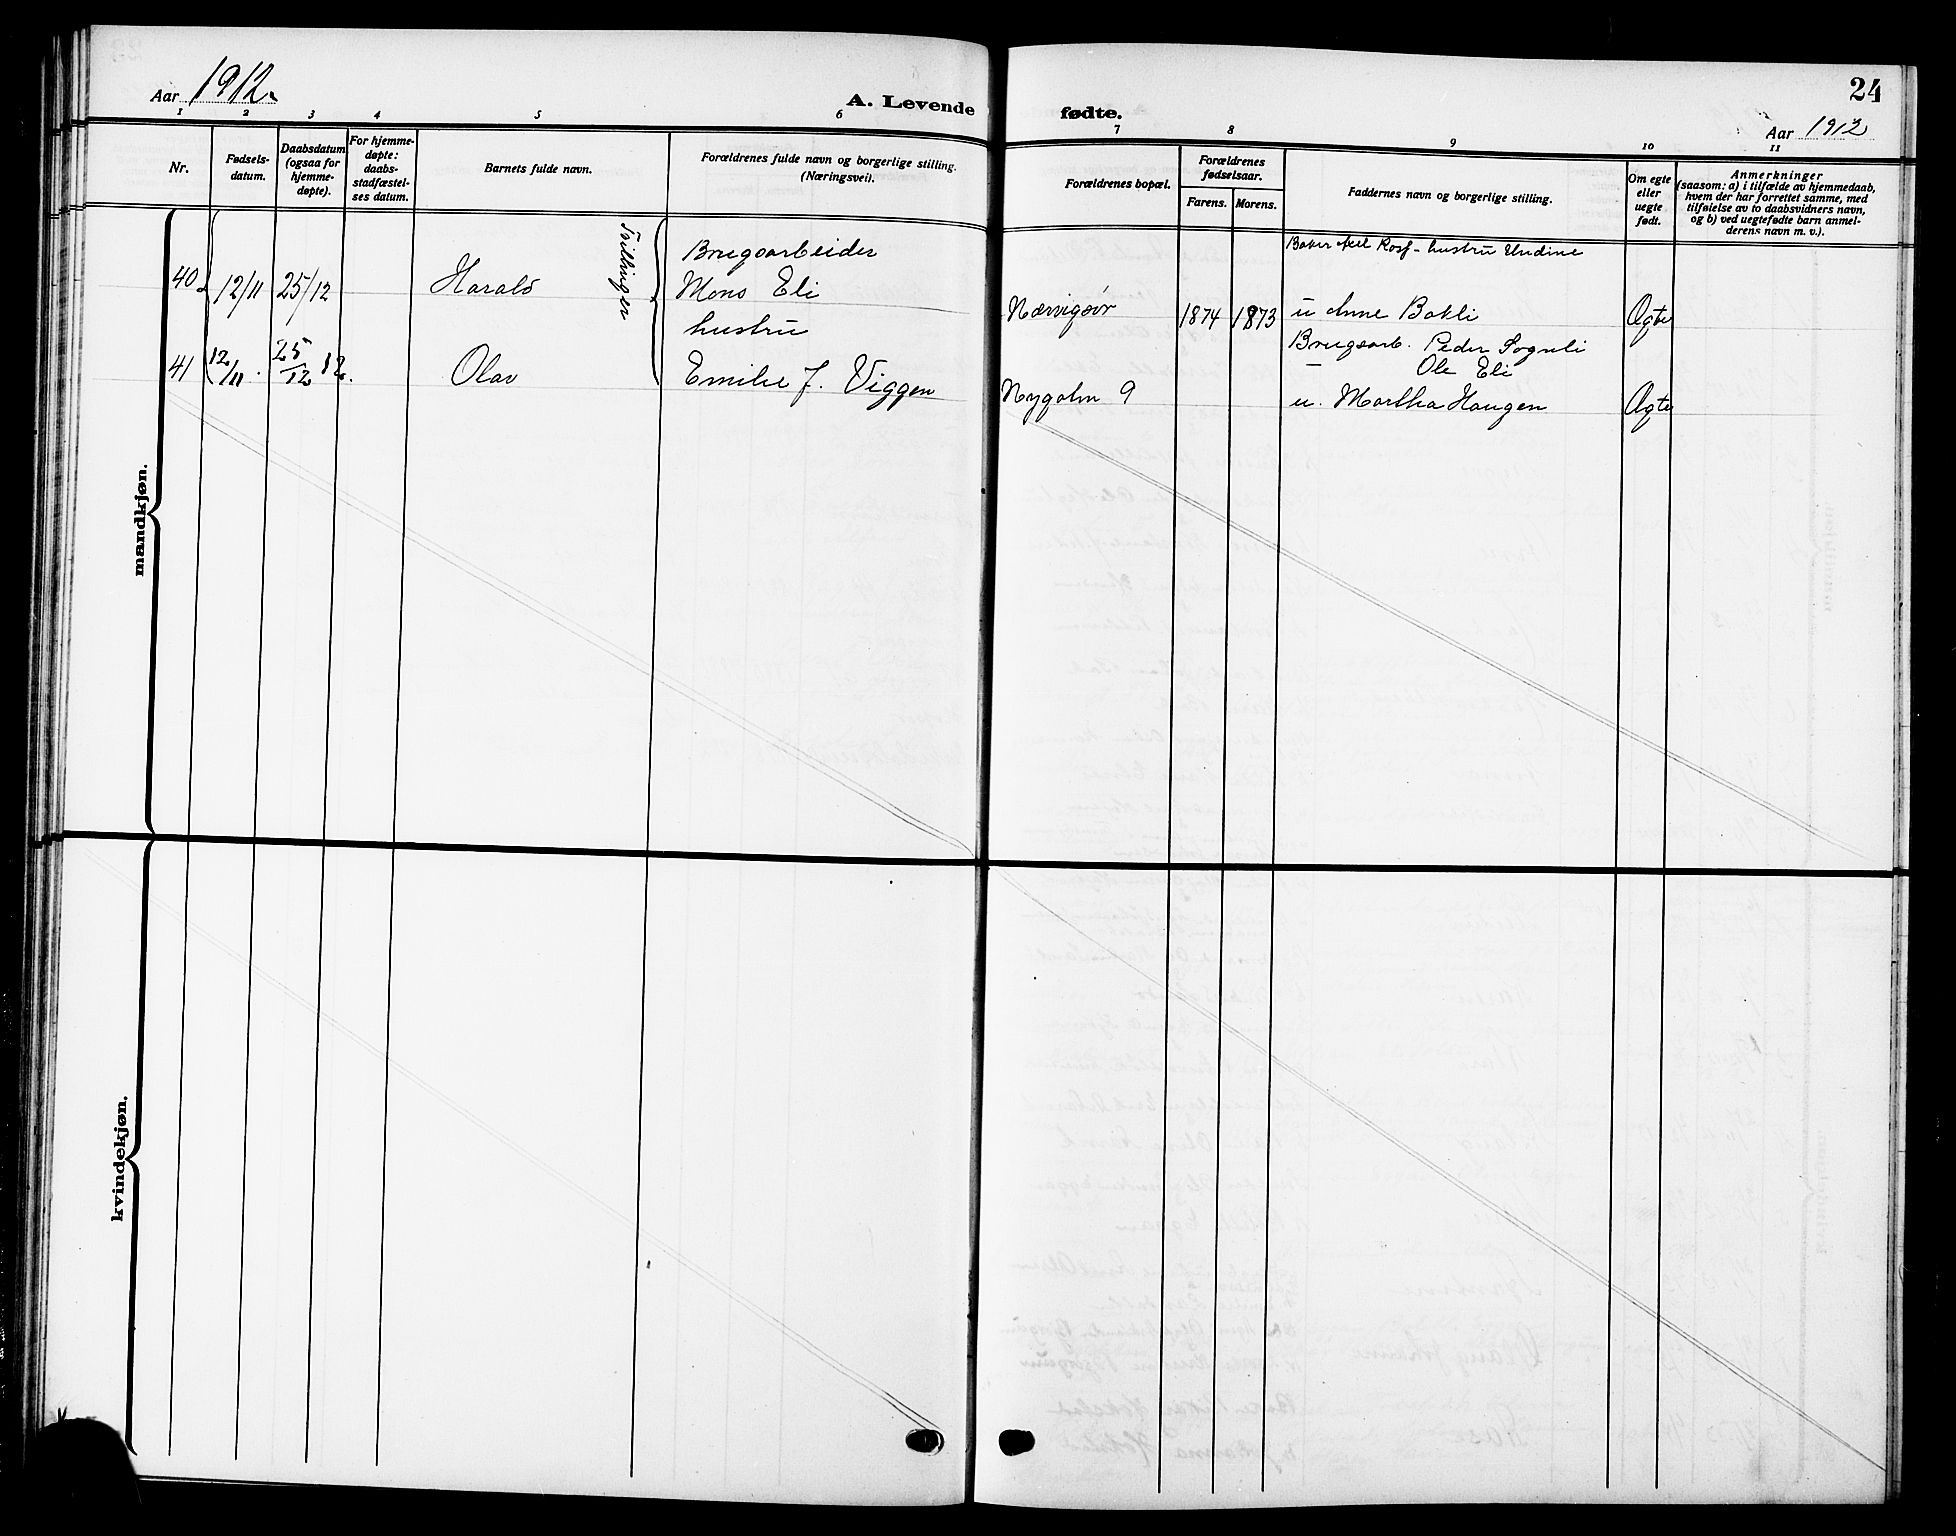 Aar 1912.
A. Levende fødte.
24
Aar 1912
1 2 3 4 5 6 7 8 9 10 11
Nr.
Fødsels-
datum.
Daabsdatum
(ogsaa for
hjemme-
døpte).
For hjemme-
døpte:
daabs-
stadfæstel-
ses datum.
Barnets fulde navn.
Forældrenes fulde navn og borgerlige stilling.
(Næringsvei).
Forældrenes bopæl.
Forældrenes
fødselsaar.
Farens. Morens.
Faddernes navn og borgerlige stilling.
Om egte
eller
uegte
født.
Anmerkninger
(saasom: a) i tilfælde av hjemmedaab,
hvem der har forrettet samme, med
tilføielse av to daabsvidners navn,
og b) ved uegtefødte barn anmel-
derens navn m. v.).
mandkjøn.
40 12/11 25/12 Harald
Tvillinger
Brugsarbeider
Mons Eli
hustru
Emilie J. Viggen
1874 1873
Baker Axel Rosf- hustru Undine
u Anne Bakli
Ægte
41 12/11. 25/12 12. Olav
Brugsarb. Peder Sognli
Ole Eli
u. Martha Haugen
Ægte
kvindekjøn.